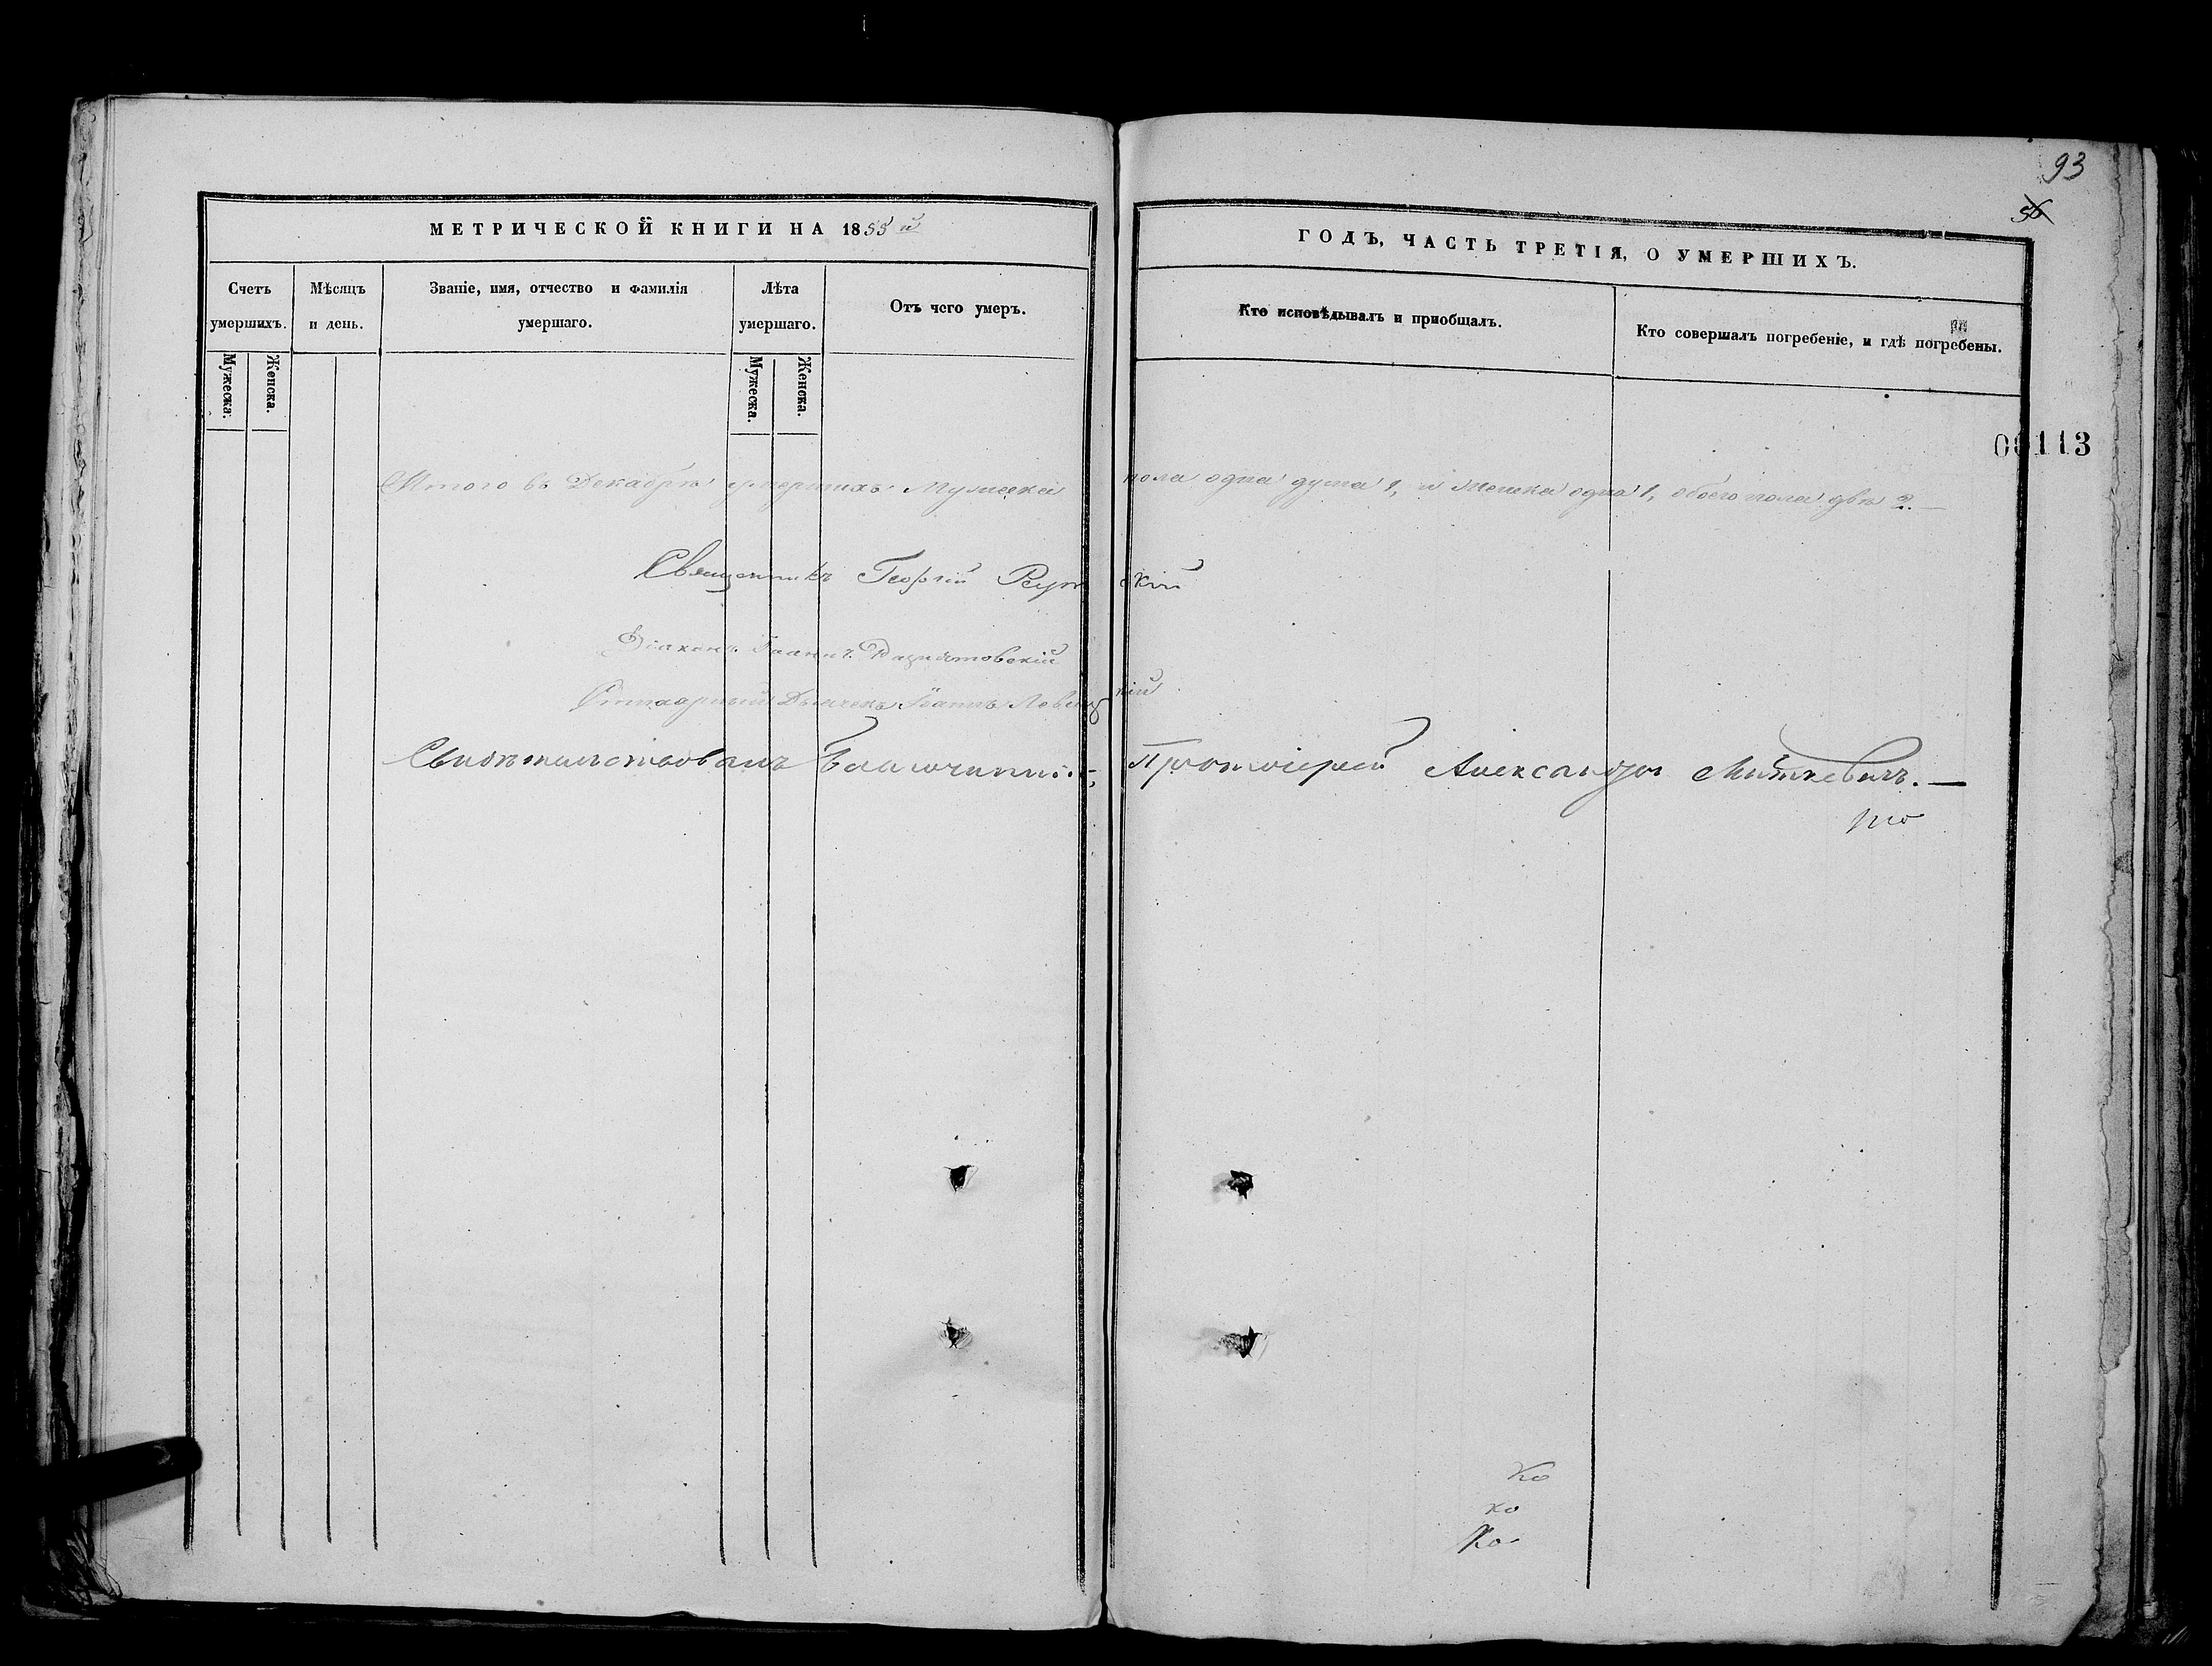 93
56
МЕТРИЧЕСКОЙ КНИГИ НА 1855й ГОДЪ, ЧАСТЬ ТРЕТІЯ, О УМЕРШИХЪ.
Счетъ умершихъ.
Мужеска.
Женска.
Мѣсяцъ и день.
Званіе, имя, отчество и фамилія умершаго.
Лѣта умершаго.
Мужеска.
Женска.
Отъ чего умеръ.
Кто исповѣдывалъ и пріобщалъ.
Кто совершалъ погребеніе, и гдѣ погребены.
00113
Итого въ Декабрѣ умершихъ Мужеска пола одна душа 1, и Женска одна 1, обоего пола двѣ 2.
Священникъ Георгій
Діаконъ Іоаннъ
Дьячекъ
Свидѣтельствовалъ Благочинный Протоіерей Александръ Миткевичъ.
Ко
ко
Ко